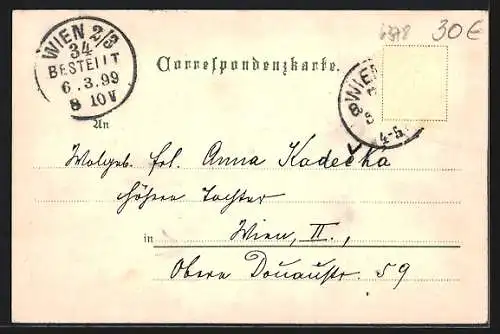 6378 30€
WIEN 2/3
34
BESTELLT
6.3.99
8 10V
Correspondenzkarte.
WIEN
8
4-5
An
Wolgeb. frl. Anna Kadecka
höhere Tochter
in Wien, II.,
Obere Donaustr. 59